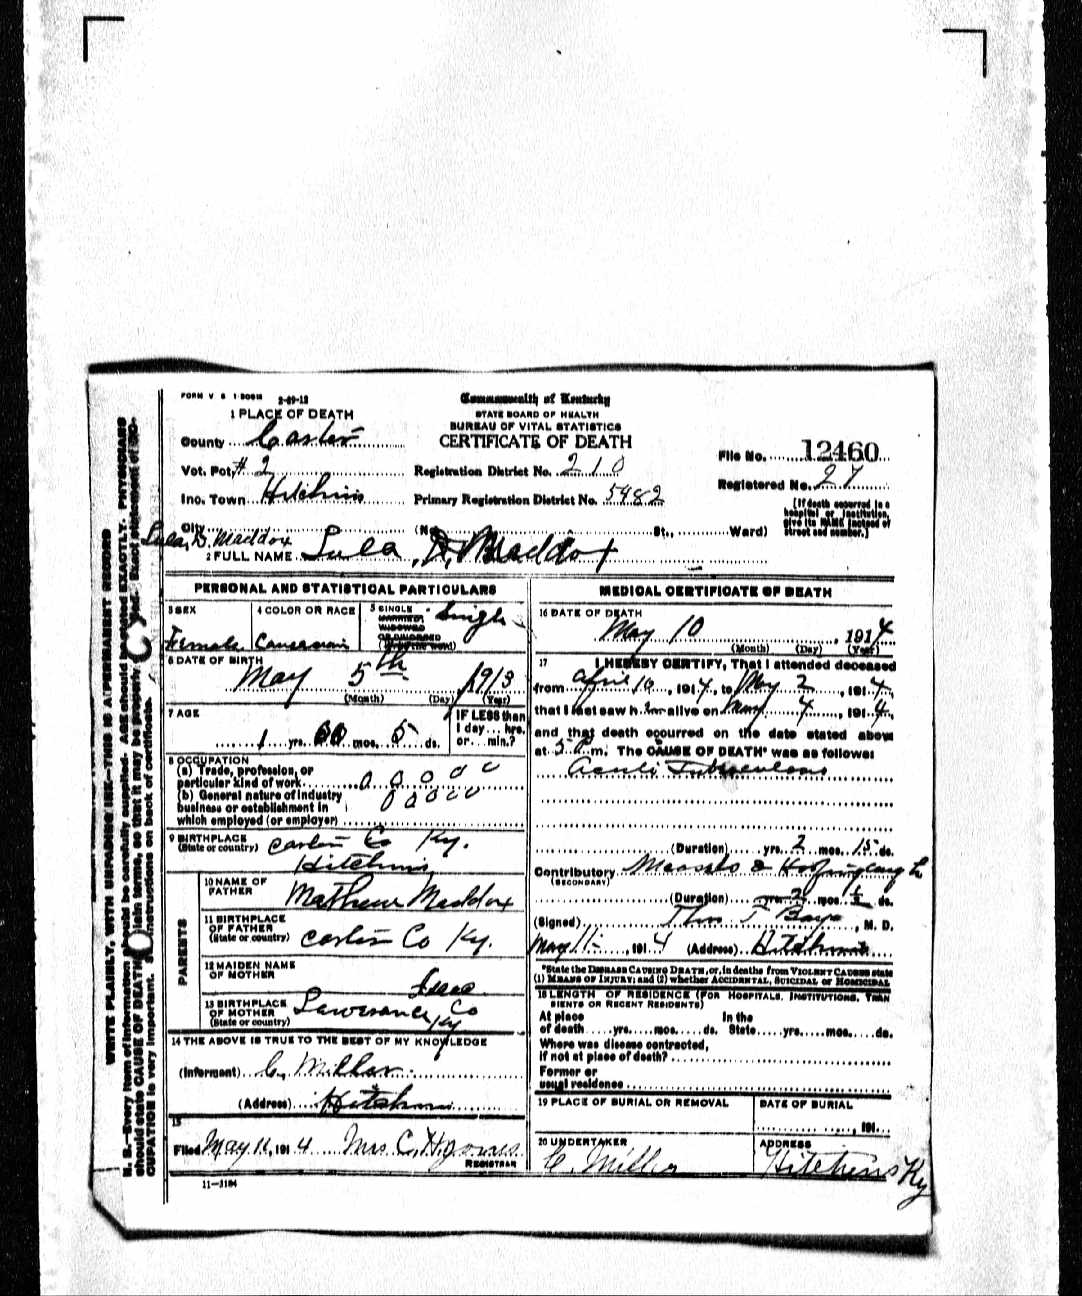 FORM V S 1 50M 2-29-12
Commonwealth of Kentucky
STATE BOARD OF HEALTH
BUREAU OF VITAL STATISTICS
CERTIFICATE OF DEATH
1 PLACE OF DEATH
County Carter
Vot. Pct. # 2
Inc. Town Hitchins
City
(No. St., Ward)
Registration District No. 210
Primary Registration District No. 5482
File No. 12460
Registered No. 27
[If death occurred in a
hospital or institution,
give its NAME instead of
street and number.]
Lula, D. Maddox
2 FULL NAME Lula, D, Maddox
PERSONAL AND STATISTICAL PARTICULARS
3 SEX
Female
4 COLOR OR RACE
Causerian
5 SINGLE
MARRIED
WIDOWED
OR DIVORCED
(Write the word)
Single
6 DATE OF BIRTH
May 5th 1913
(Month) (Day) (Year)
7 AGE
1 yrs. 00 mos. 5 ds.
IF LESS than
1 day... hrs.
or... min.?
8 OCCUPATION
(a) Trade, profession, or
particular kind of work 0 0 0 0 0
(b) General nature of industry
business or establishment in
which employed (or employer)
0 0 0 0 0
9 BIRTHPLACE
(State or country)
Carter Co Ky.
Hitchins
PARENTS
10 NAME OF
FATHER
Mathew Maddox
11 BIRTHPLACE
OF FATHER
(State or country)
Carter Co Ky.
12 MAIDEN NAME
OF MOTHER
13 BIRTHPLACE
OF MOTHER
(State or country)
Lawrance Co
Ky
14 THE ABOVE IS TRUE TO THE BEST OF MY KNOWLEDGE
(Informant) C. Miller
(Address) Hitchins
15
Filed May 11, 1914 Mrs C. H. Jones
REGISTRAR
11-3184
MEDICAL CERTIFICATE OF DEATH
16 DATE OF DEATH
May 10, 1914
(Month) (Day) (Year)
17 I HEREBY CERTIFY, That I attended deceased
from April 10, 1914, to May 2, 1914,
that I last saw h er alive on May 4, 1914,
and that death occurred on the date stated above
at 5 P m. The CAUSE OF DEATH* was as follows:
(Duration) yrs. 2 mos. 15 ds.
Contributory
(SECONDARY)
(Duration) yrs. mos. ds.
(Signed) Thos J Bays, M. D.
May 11-, 1914 (Address) Hitchins
*State the DISEASE CAUSING DEATH, or, in deaths from VIOLENT CAUSES state
(1) MEANS OF INJURY; and (2) whether ACCIDENTAL, SUICIDAL or HOMICIDAL
18 LENGTH OF RESIDENCE (FOR HOSPITALS, INSTITUTIONS, TRAN
SIENTS OR RECENT RESIDENTS)
At place In the
of death yrs. mos. ds. State yrs. mos. ds.
Where was disease contracted,
if not at place of death?
Former or
usual residence
19 PLACE OF BURIAL OR REMOVAL
DATE OF BURIAL
, 191
20 UNDERTAKER
C. Miller
ADDRESS
Hitchins Ky
WRITE PLAINLY, WITH UNFADING INK—THIS IS A PERMANENT RECORD
N. B.—Every item of information should be carefully supplied. AGE should be stated EXACTLY. PHYSICIANS
should state CAUSE OF DEATH in plain terms, so that it may be properly classified. Exact statement of OC-
CUPATION is very important. See instructions on back of certificate.